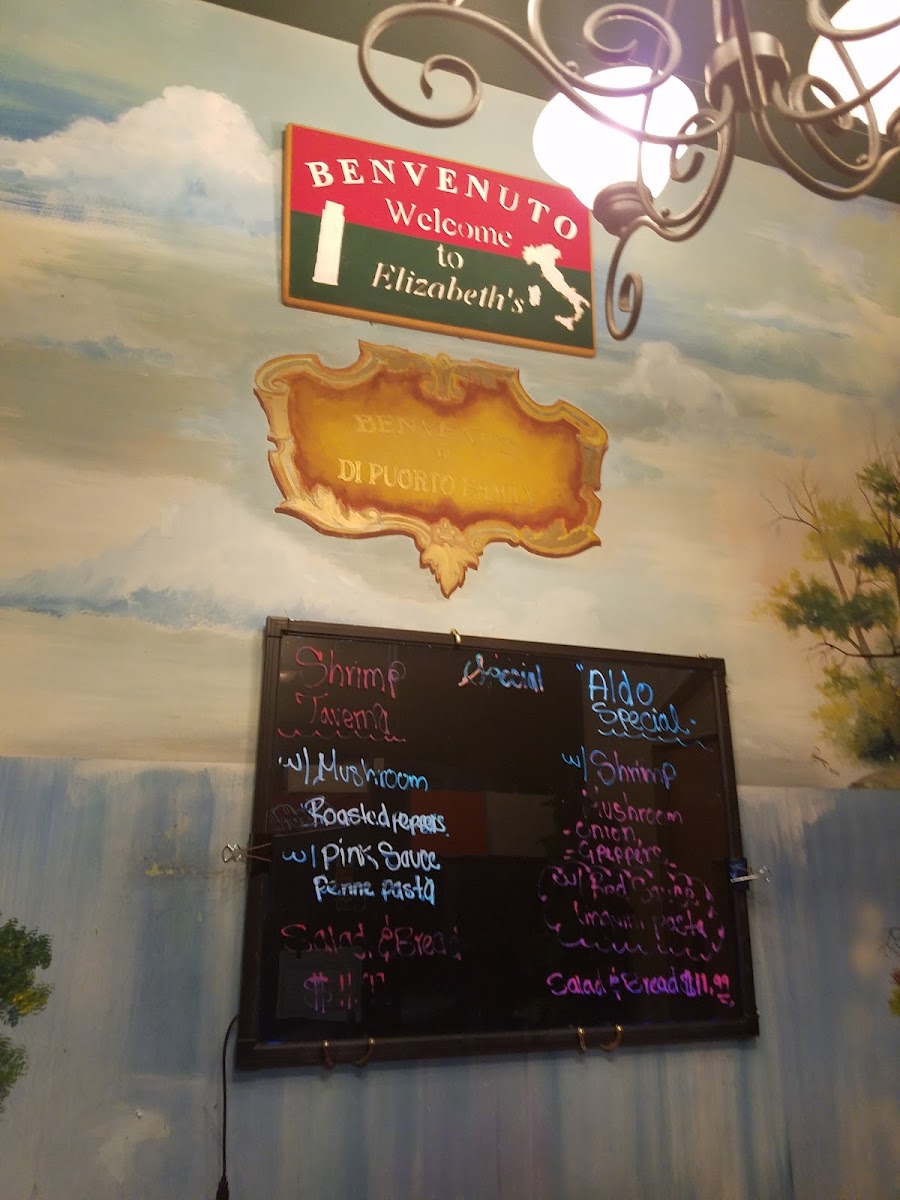 BENVENUTO
Welcome
to
Elizabeth's
DI PUORTO FAMILY
Special
Shrimp
Taverna
w/ Mushroom
Roasted peppers
w/ Pink Sauce
Penne pasta
Salad & Bread
"Aldo
Special"
w/ Shrimp
Mushroom
- Onion
- G Peppers
w/ Red Sauce
Linguini pasta
Salad & Bread $11.99